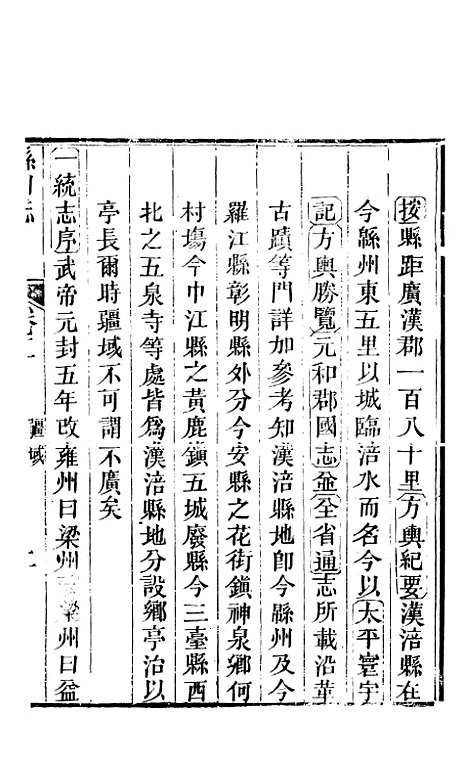 按縣距廣漢郡一百八十里方輿紀要漢涪縣在
今緜州東五里以城臨涪水而名今以太平寰宇
記方輿勝覽元和郡國志並全省通志所載沿革
古蹟等門詳加參考知漢涪縣地卽今緜州及今
羅江縣彰明縣外分今安縣之花街鎮神泉鄉何
村塲今中江縣之黃鹿鎮五城廢縣今三臺縣西
北之五泉寺等處皆爲漢涪縣地分設鄉亭治以
亭長爾時疆域不可謂不廣矣
一統志序武帝元封五年改雍州曰梁州 梁州曰益
緜州志 卷二 疆域